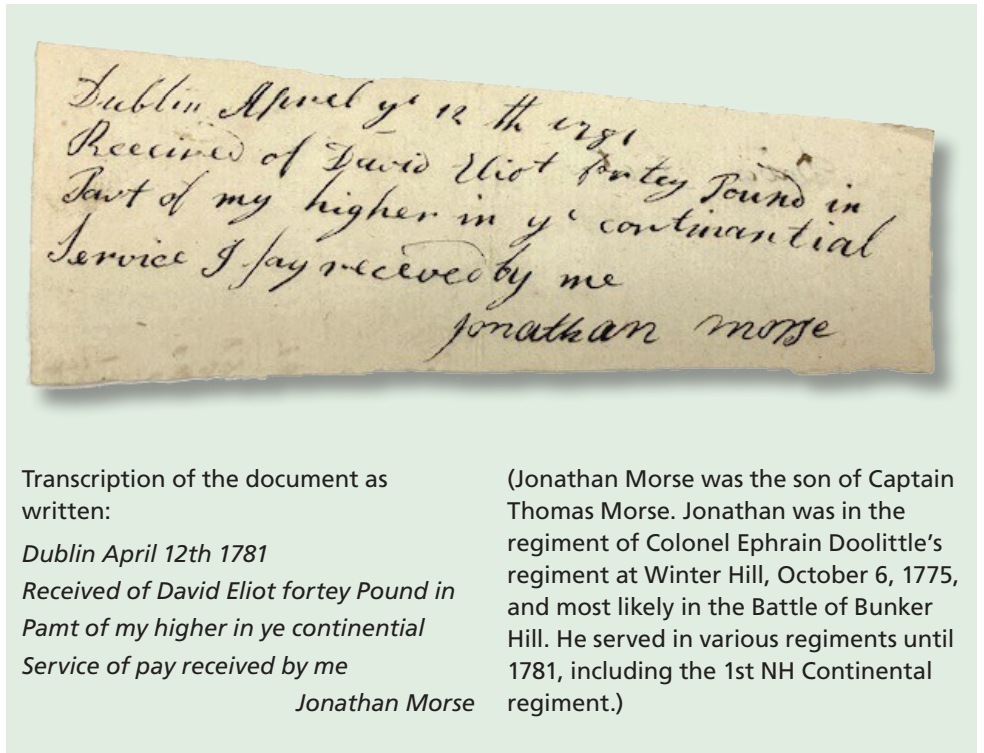 Dublin April ye 12 th 1781
Received of David Eliot fortey Pound in
Part of my higher in ye continantial
Service I say received by me
Jonathan Morse
Transcription of the document as
written:
Dublin April 12th 1781
Received of David Eliot fortey Pound in
Pamt of my higher in ye continential
Service of pay received by me
Jonathan Morse
(Jonathan Morse was the son of Captain
Thomas Morse. Jonathan was in the
regiment of Colonel Ephrain Doolittle’s
regiment at Winter Hill, October 6, 1775,
and most likely in the Battle of Bunker
Hill. He served in various regiments until
1781, including the 1st NH Continental
regiment.)